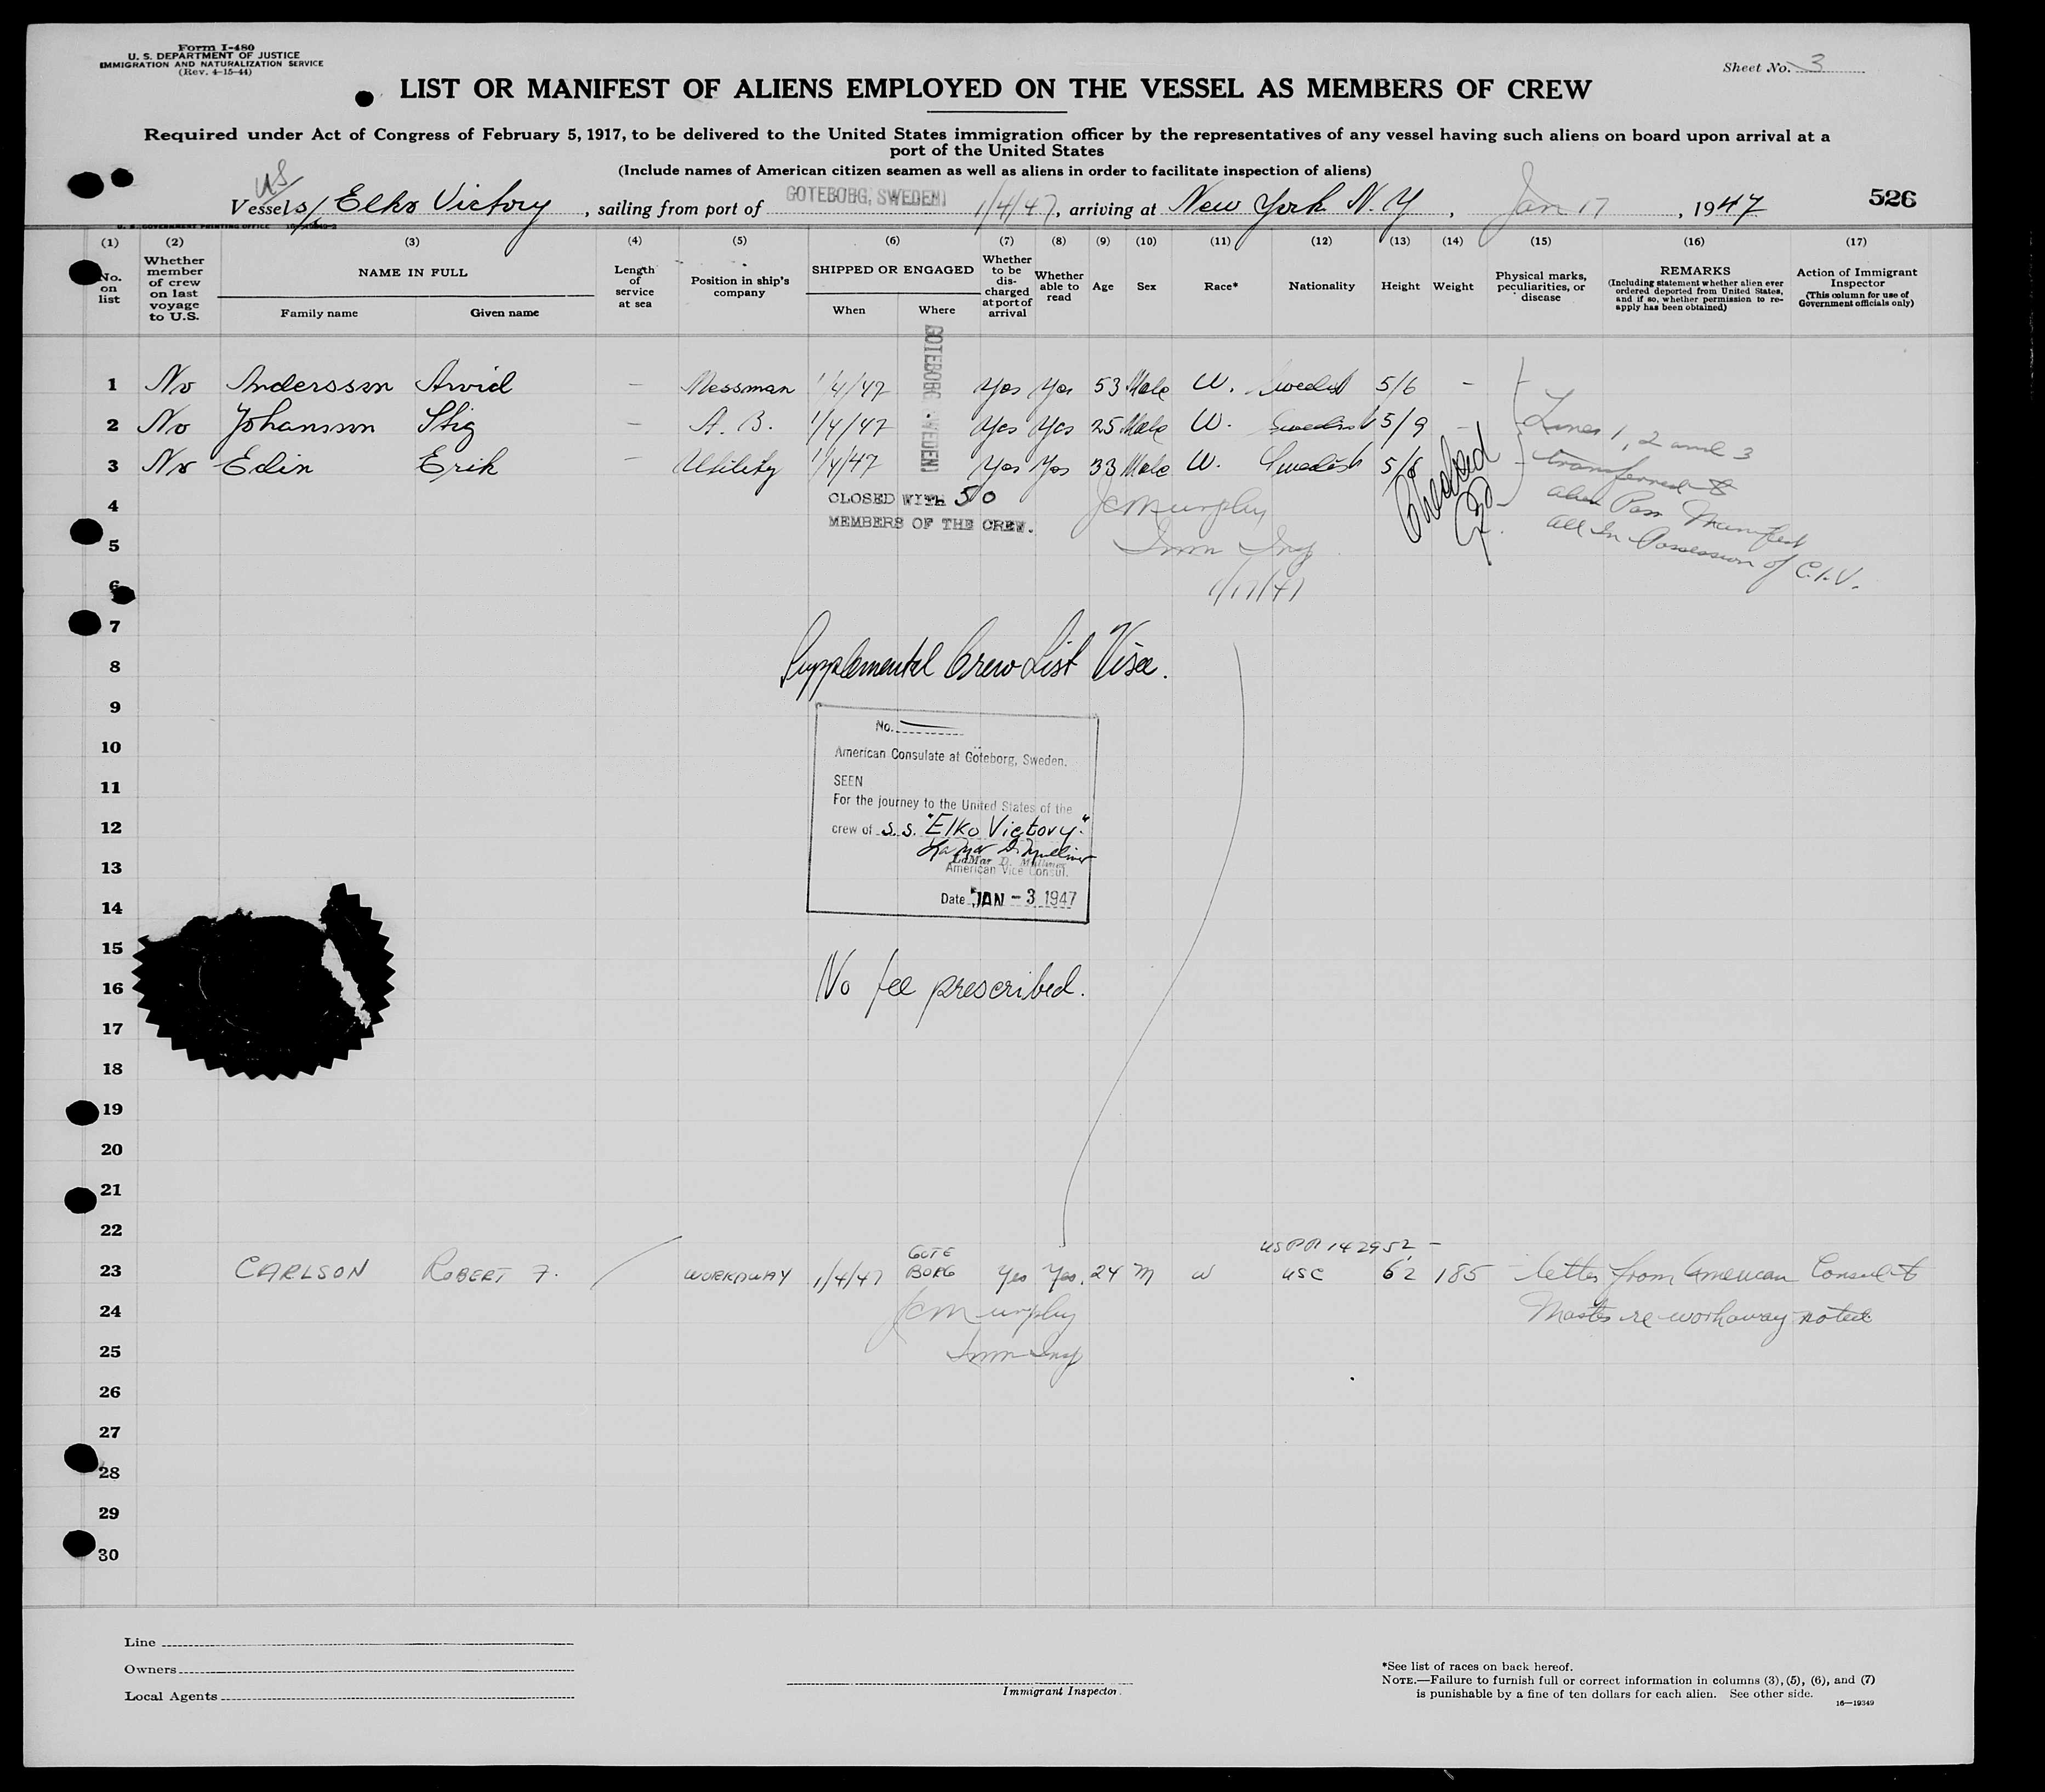 Form I-480
U. S. DEPARTMENT OF JUSTICE
IMMIGRATION AND NATURALIZATION SERVICE
(Rev. 4-15-44)
Sheet No. 3
LIST OR MANIFEST OF ALIENS EMPLOYED ON THE VESSEL AS MEMBERS OF CREW
Required under Act of Congress of February 5, 1917, to be delivered to the United States immigration officer by the representatives of any vessel having such aliens on board upon arrival at a
port of the United States
(Include names of American citizen seamen as well as aliens in order to facilitate inspection of aliens)
US
Vessel s/s Elko Victory, sailing from port of GOTEBORG, SWEDEN 1/4/47, arriving at New York N.Y, Jan 17, 1947 526
U. S. GOVERNMENT PRINTING OFFICE
(1) (2) (3) (4) (5) (6) (7) (8) (9) (10) (11) (12) (13) (14) (15) (16) (17)
No. on list
Whether member of crew on last voyage to U.S.
NAME IN FULL
Family name Given name
Length of service at sea
Position in ship's company
SHIPPED OR ENGAGED
When Where
Whether to be discharged at port of arrival
Whether able to read
Age
Sex
Race*
Nationality
Height
Weight
Physical marks, peculiarities, or disease
REMARKS
(Including statement whether alien ever ordered deported from United States, and if so, whether permission to re-apply has been obtained)
Action of Immigrant Inspector
(This column for use of Government officials only)
GOTEBORG, SWEDEN
1 No Andersson Arvid — Messman 1/4/47 Yes Yes 53 Male W. Swedish 5/6 -
2 No Johansson Stig — A. B. 1/4/47 Yes Yes 25 Male W. Swedish 5/9 -
3 No Edin Erik — Utility 1/4/47 Yes Yes 33 Male W. Swedish 5/8 -
Lines 1, 2 and 3
transferred to
alien Pass Manifest
all In Possession of C.I.V.
Checked
CLOSED WITH 50
MEMBERS OF THE CREW.
JC Murphy
Imm Insp
1/17/47
4
5
6
7
Supplemental Crew List Visa.
8
9
No.
10
American Consulate at Göteborg, Sweden.
11
SEEN
For the journey to the United States of the
12
crew of S.S. "Elko Victory"
LaMar D. Mulliner
LaMar D. Mulliner
13
American Vice Consul.
14
Date JAN - 3 1947
15
16
No fee prescribed.
17
18
19
20
21
22
USPP 142952 -
23 CARLSON ROBERT F. / WORKAWAY 1/4/47 GOTEBORG Yes Yes. 24 M W USC 6'2 185 letter from American Consul to
24 JC Murphy Master re workaway noted
25 Imm Insp
26
27
28
29
30
Line
Owners
Local Agents
Immigrant Inspector.
*See list of races on back hereof.
NOTE.—Failure to furnish full or correct information in columns (3), (5), (6), and (7)
is punishable by a fine of ten dollars for each alien. See other side.
16—19349